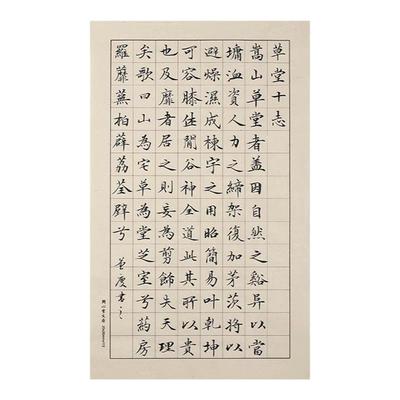 草堂十志
嵩山草堂者盖因自然之谿异以當
墉洫資人力之締架復加茅茨將以
避燥濕成棟宇之用昭簡易叶乾坤
可容膝休閒谷神全道此其所以貴
也及靡者居之則妄為剪飾失天理
矣歌曰山為宅草為堂芝室兮葯房
羅蘼蕪柏薜荔荃辟兮